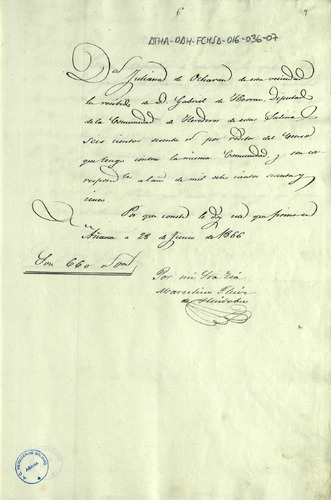 6
ATHA-DAH-FCHSA-016-036-07
Dª Juliana de Ochavan de esta vecindad
he recibido de D. Gabriel de Herran, Diputado
de la Comunidad de Herederos de estas Salinas
seis cientos sesenta rˢ por réditos del Censo
que tengo contra la misma Comunidad, y son co
respondᵗᵉ al año de mil seis cientos cuenta y
cinco
Por que conste le doy este que firmo en
Añana a 28 de Junio de 1866
Son 660 rˢ vⁿ
Por mi Sra Tía
Marcelino
de
AÑANA